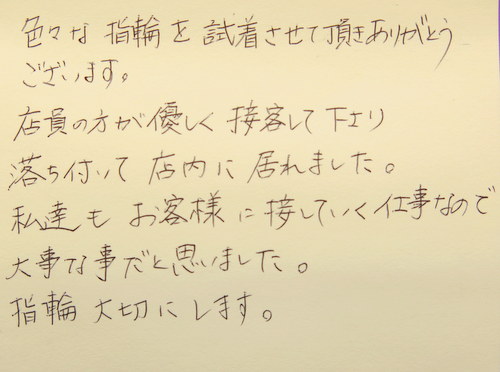 色々な指輪を試着させて頂きありがとう
ございます。
店員の方が優しく接客して下さり
落ち付いて店内に居れました。
私達もお客様に接していく仕事なので
大事な事だと思いました。
指輪大切にします。